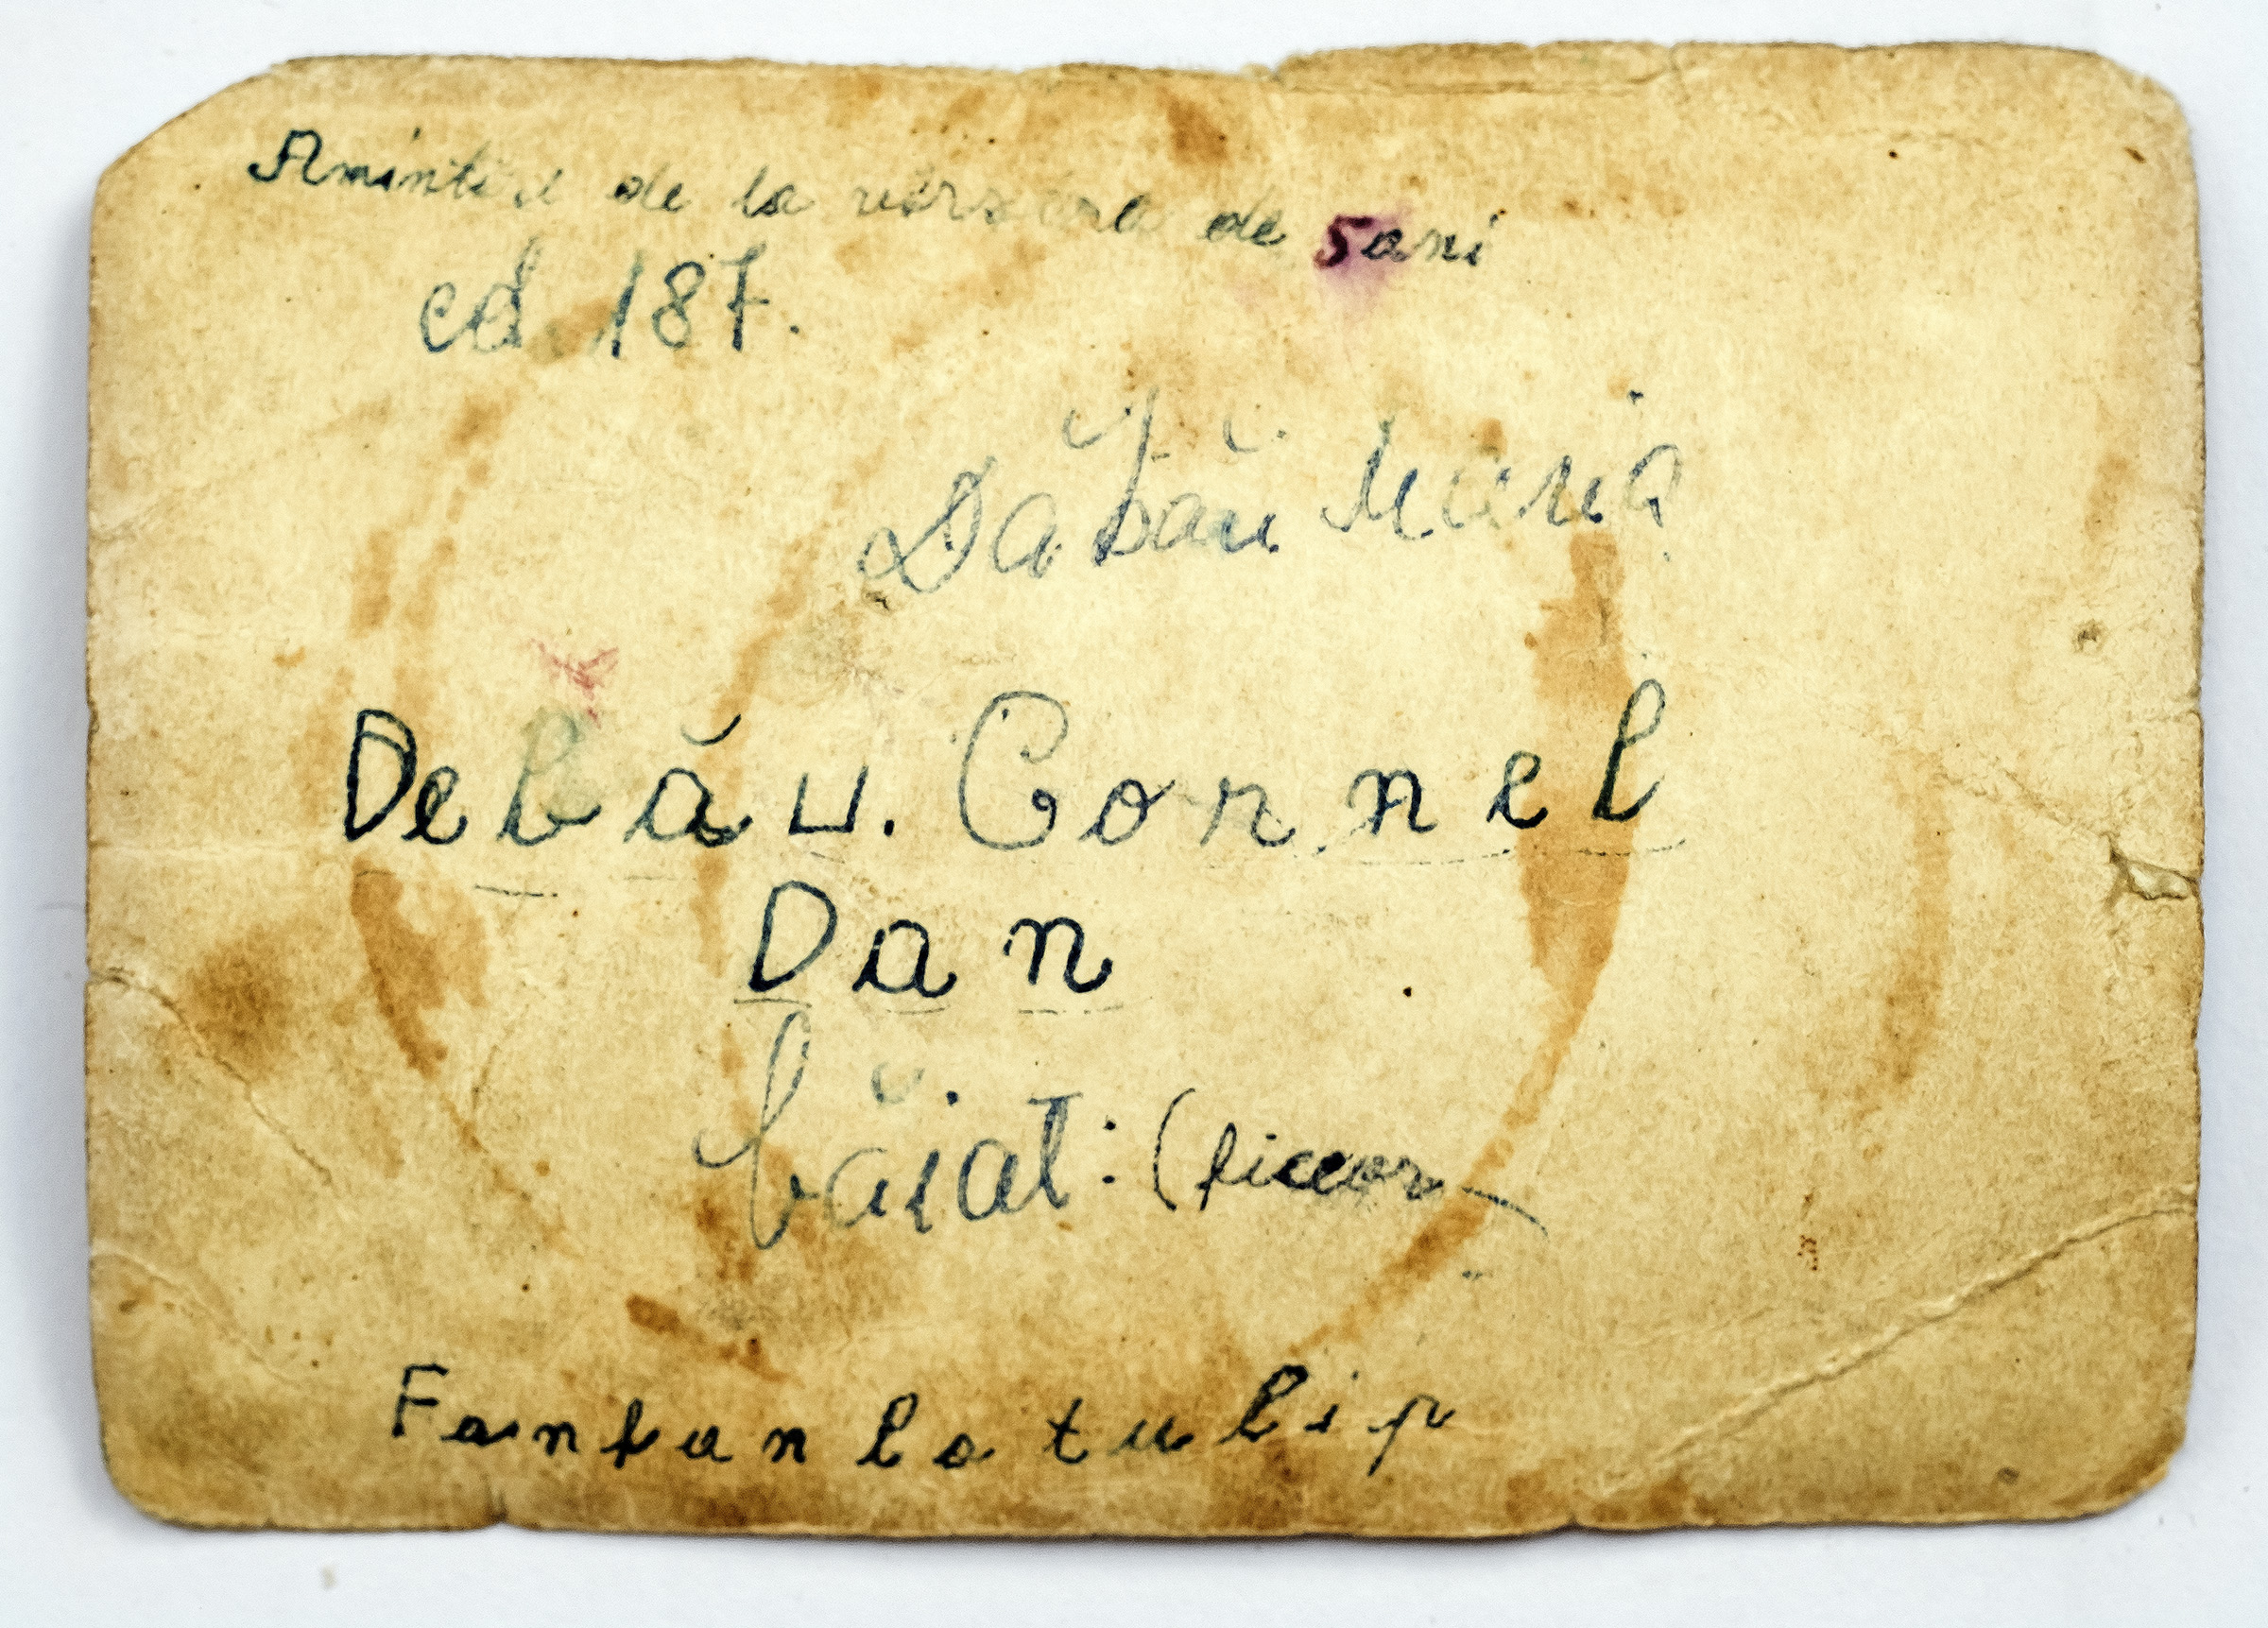 Amintiri de la vârsta de 5 ani
cd. 187.
Dăbău Maria
Debău. Cornel
Dan
băiat: (
Fanfan la tulip